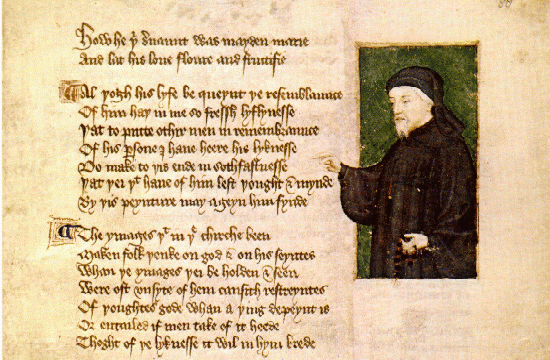 How he þͥ ẜuaunt was mayden marie
And lat his loue floure and fructifie
Al þogh his lyfe be queynt þe resemblaunce
Of him haþ in me so fressh lyflynesse
Þat to putte othir men in remembraunce
Of his ꝑsone I haue heere his lyknesse
Do make to þis ende in sothfastnesse
Þat þei þͭ haue of him lest þought & mynde
By þis peynture may ageyn him fynde
The ymages þͭ in þͤ chirche been
Maken folk þenke on god & on his seyntes
Whan þe ymages þei be holden & seen
Were oft vnsyte of hem causith restreyntes
Of þoughtes gode whan a þing depeynt is
Or entailed if men take of it heede
Thoght of þe lyknesse it wil in hym brede